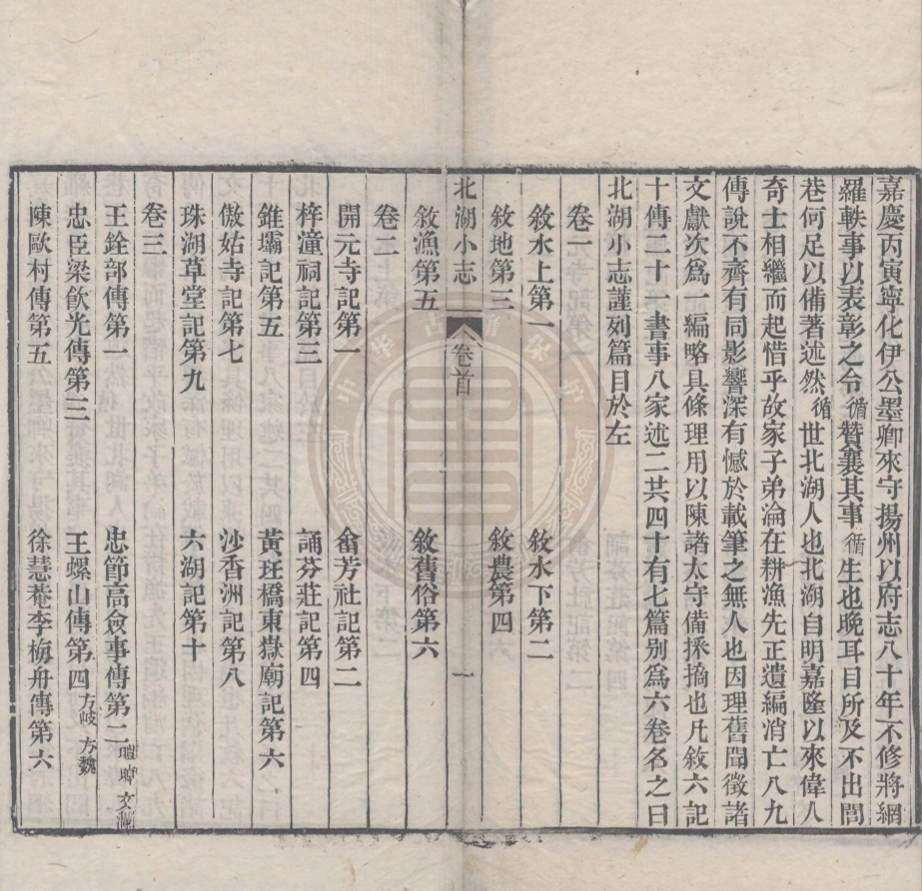 嘉慶丙寅寧化伊公墨卿來守揚州以府志八十年不修將網
羅軼事以表彰之令循贊襄其事循生也晚耳目所及不出閭
巷何足以備著述然循世北湖人也北湖自明嘉隆以來偉人
奇士相繼而起惜乎故家子弟淪在耕漁先正遺編消亡八九
傳說不齊有同影響深有憾於載筆之無人也因理舊聞徵諸
文獻次爲一編略具條理用以陳諸太守備採摘也凡敘六記
十傳二十一書事八家述二共四十有七篇别爲六卷名之曰
北湖小志謹列篇目於左
卷一
敘水上第一 敘水下第二
敘地第三 敘農第四
北湖小志 卷首 一
敘漁第五 敘舊俗第六
卷二
開元寺記第一 畲芳社記第二
梓潼祠記第三 誦芬莊記第四
錐壩記第五 黃玨橋東嶽廟記第六
傲姑寺記第七 沙香洲記第八
珠湖草堂記第九 六湖記第十
卷三
王銓部傳第一 忠節高僉事傳第二
忠臣梁飲光傳第三 王螺山傳第四 方岐 方魏
陳歐村傳第五 徐慧菴李梅舟傳第六